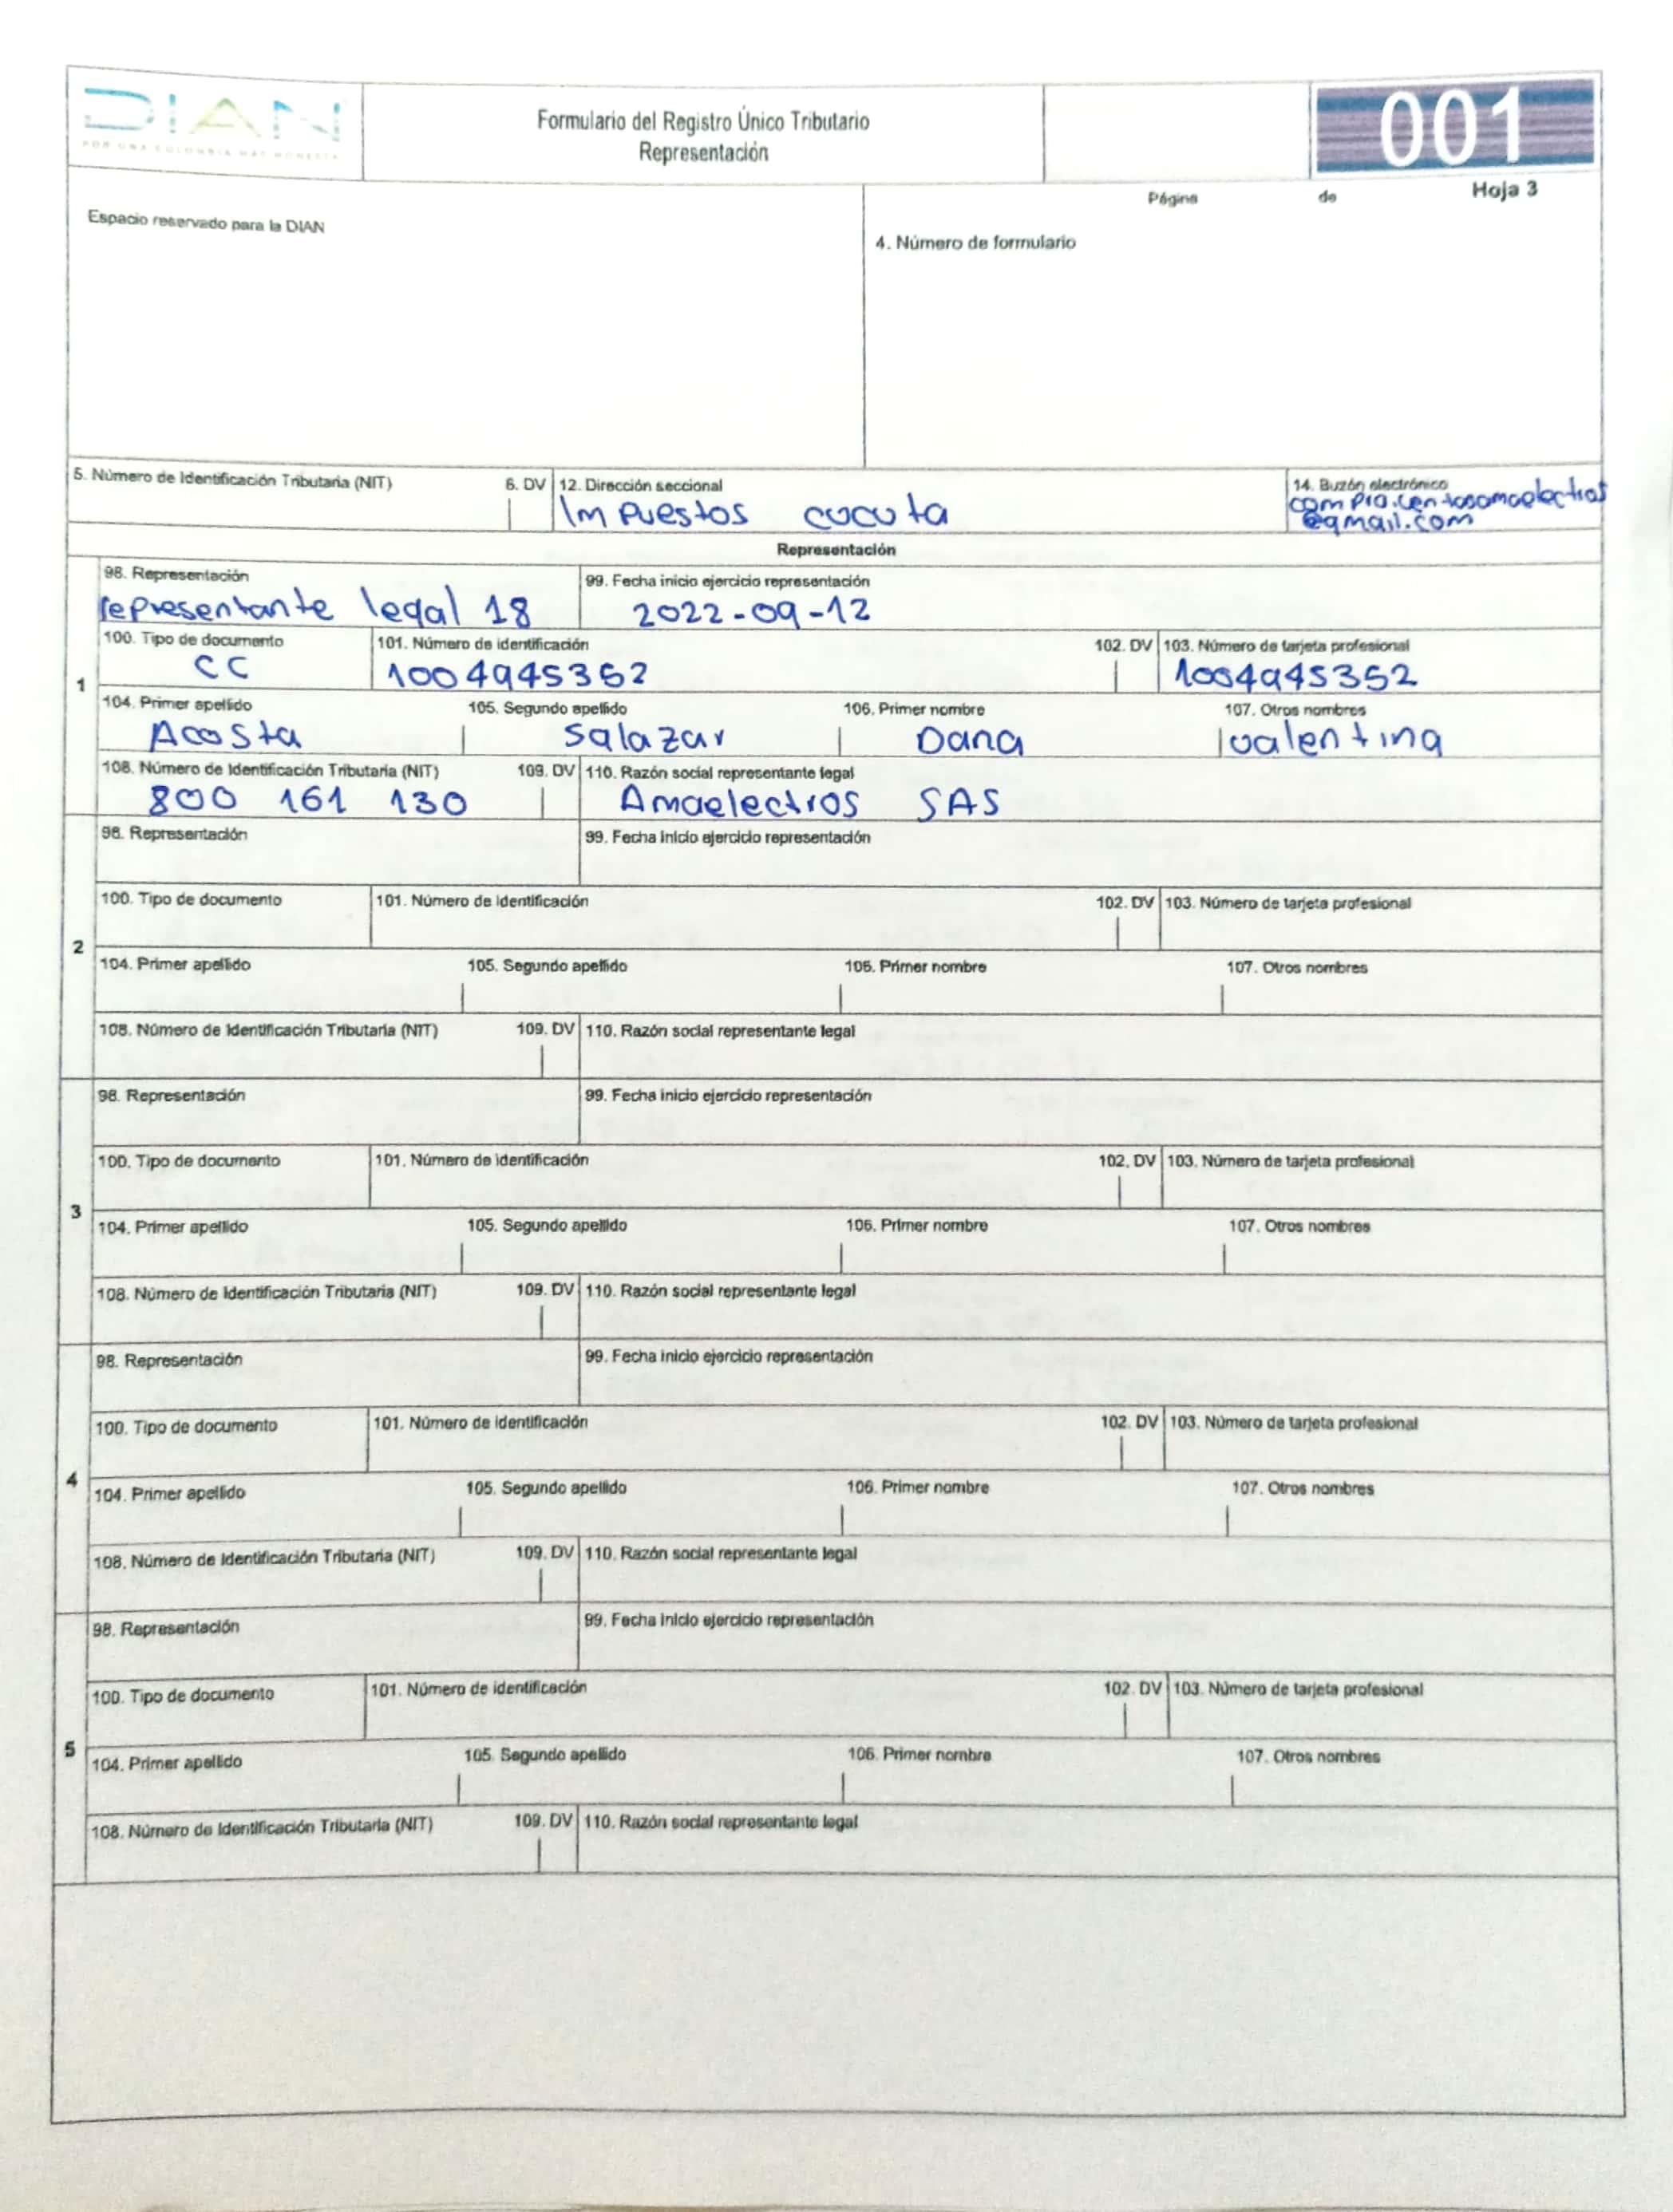 DIAN
POR UNA COLOMBIA MÁS HONESTA
Formulario del Registro Único Tributario
Representación
001
Página de Hoja 3
Espacio reservado para la DIAN
4. Número de formulario
5. Número de Identificación Tributaria (NIT) 6. DV 12. Dirección seccional 14. Buzón electrónico
Impuestos cucuta
@gmail.com
Representación
98. Representación 99. Fecha inicio ejercicio representación
representante legal 18 2022-09-12
100. Tipo de documento 101. Número de identificación 102. DV 103. Número de tarjeta profesional
CC 1004945362 1004945352
1
104. Primer apellido 105. Segundo apellido 106. Primer nombre 107. Otros nombres
Acosta Salazar Dana valentina
108. Número de Identificación Tributaria (NIT) 109. DV 110. Razón social representante legal
800 161 130 Amaelectros SAS
98. Representación 99. Fecha inicio ejercicio representación
100. Tipo de documento 101. Número de identificación 102. DV 103. Número de tarjeta profesional
2
104. Primer apellido 105. Segundo apellido 106. Primer nombre 107. Otros nombres
108. Número de Identificación Tributaria (NIT) 109. DV 110. Razón social representante legal
98. Representación 99. Fecha inicio ejercicio representación
100. Tipo de documento 101. Número de identificación 102. DV 103. Número de tarjeta profesional
3
104. Primer apellido 105. Segundo apellido 106. Primer nombre 107. Otros nombres
108. Número de Identificación Tributaria (NIT) 109. DV 110. Razón social representante legal
98. Representación 99. Fecha inicio ejercicio representación
100. Tipo de documento 101. Número de identificación 102. DV 103. Número de tarjeta profesional
4
104. Primer apellido 105. Segundo apellido 106. Primer nombre 107. Otros nombres
108. Número de Identificación Tributaria (NIT) 109. DV 110. Razón social representante legal
98. Representación 99. Fecha inicio ejercicio representación
100. Tipo de documento 101. Número de identificación 102. DV 103. Número de tarjeta profesional
5
104. Primer apellido 105. Segundo apellido 106. Primer nombre 107. Otros nombres
108. Número de Identificación Tributaria (NIT) 109. DV 110. Razón social representante legal